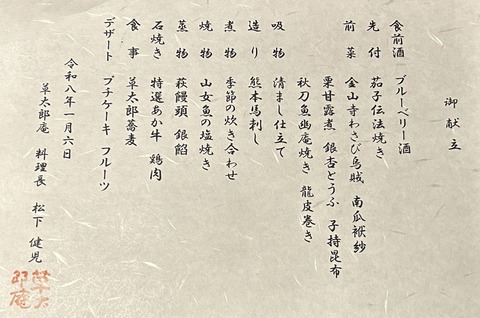 御献立
食前酒 ブルーベリー酒
先付 茄子伝法焼き
前菜 金山寺わさび烏賊 南瓜袱紗
栗甘露煮 銀杏とうふ 子持昆布
秋刀魚幽庵焼き 龍皮巻き
吸物 清まし仕立て
造り 熊本馬刺し
煮物 季節の炊き合わせ
焼物 山女魚の塩焼き
蒸物 萩饅頭 銀餡
石焼き 特選あか牛 鶏肉
食事 草太郎蕎麦
デザート プチケーキ フルーツ
令和八年一月六日
草太郎庵 料理長 松下健児
草太
郎庵